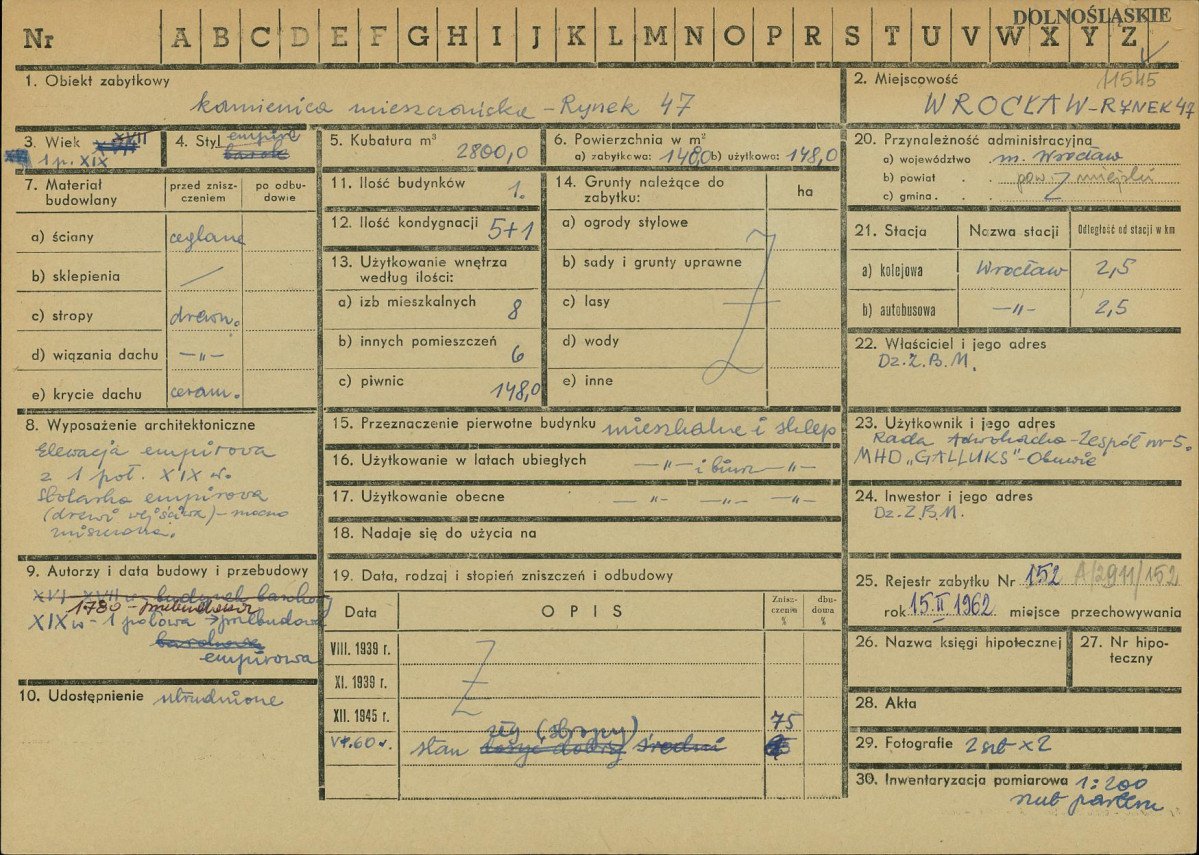 DOLNOŚLĄSKIE
Nr A B C D E F G H I J K L M N O P R S T U V W X Y Z
11545
1. Obiekt zabytkowy
kamienica mieszczańska – Rynek 47
2. Miejscowość
WROCŁAW – RYNEK 47
3. Wiek XVII
1 p. XIX
4. Styl empire
barok
5. Kubatura m³
2800,0
6. Powierzchnia w m²
a) zabytkowa: 148,0 b) użytkowa: 148,0
7. Materiał budowlany
przed zniszczeniem
po odbudowie
a) ściany ceglane
b) sklepienia —
c) stropy drewn.
d) wiązania dachu —„—
e) krycie dachu ceram.
8. Wyposażenie architektoniczne
Elewacja empirowa
z 1 poł. XIX w.
stolarka empirowa
(drzwi wejściowe) – mocno
zniszczona.
9. Autorzy i data budowy i przebudowy
XVI XVII w budynek barokowy
1780 – przebudowa
XIX w – 1 połowa → przebudowa
barokowa
empirowa
10. Udostępnienie utrudnione
11. Ilość budynków 1.
12. Ilość kondygnacji 5+1
13. Użytkowanie wnętrza
według ilości:
a) izb mieszkalnych 8
b) innych pomieszczeń 6
c) piwnic 148,0
14. Grunty należące do
zabytku:
ha
a) ogrody stylowe
b) sady i grunty uprawne
c) lasy
d) wody
e) inne
15. Przeznaczenie pierwotne budynku mieszkalne i sklep
16. Użytkowanie w latach ubiegłych —„— i biura —„—
17. Użytkowanie obecne —„— —„— —„—
18. Nadaje się do użycia na
19. Data, rodzaj i stopień zniszczeń i odbudowy
Data
OPIS
Zniszczenia %
dbudowa %
VIII. 1939 r.
XI. 1939 r.
XII. 1945 r. 75
zły (stropy)
VI.60 r. stan dosyć dobry średni
20. Przynależność administracyjna
a) województwo m. Wrocław
b) powiat pow. miejski
c) gmina
21. Stacja
Nazwa stacji
Odległość od stacji w km
a) kolejowa Wrocław 2,5
b) autobusowa —„— 2,5
22. Właściciel i jego adres
Dz.Z.B.M.
23. Użytkownik i jego adres
Rada Adwokacka – Zespół nr 5.
MHD „GALLUKS” – Obuwie
24. Inwestor i jego adres
Dz.Z.B.M.
25. Rejestr zabytku Nr 152 A/2911/152
rok 15.II.1962 miejsce przechowywania
26. Nazwa księgi hipotecznej
27. Nr hipoteczny
28. Akta
29. Fotografie 2 szt x 2
30. Inwentaryzacja pomiarowa 1:200
rzut parteru